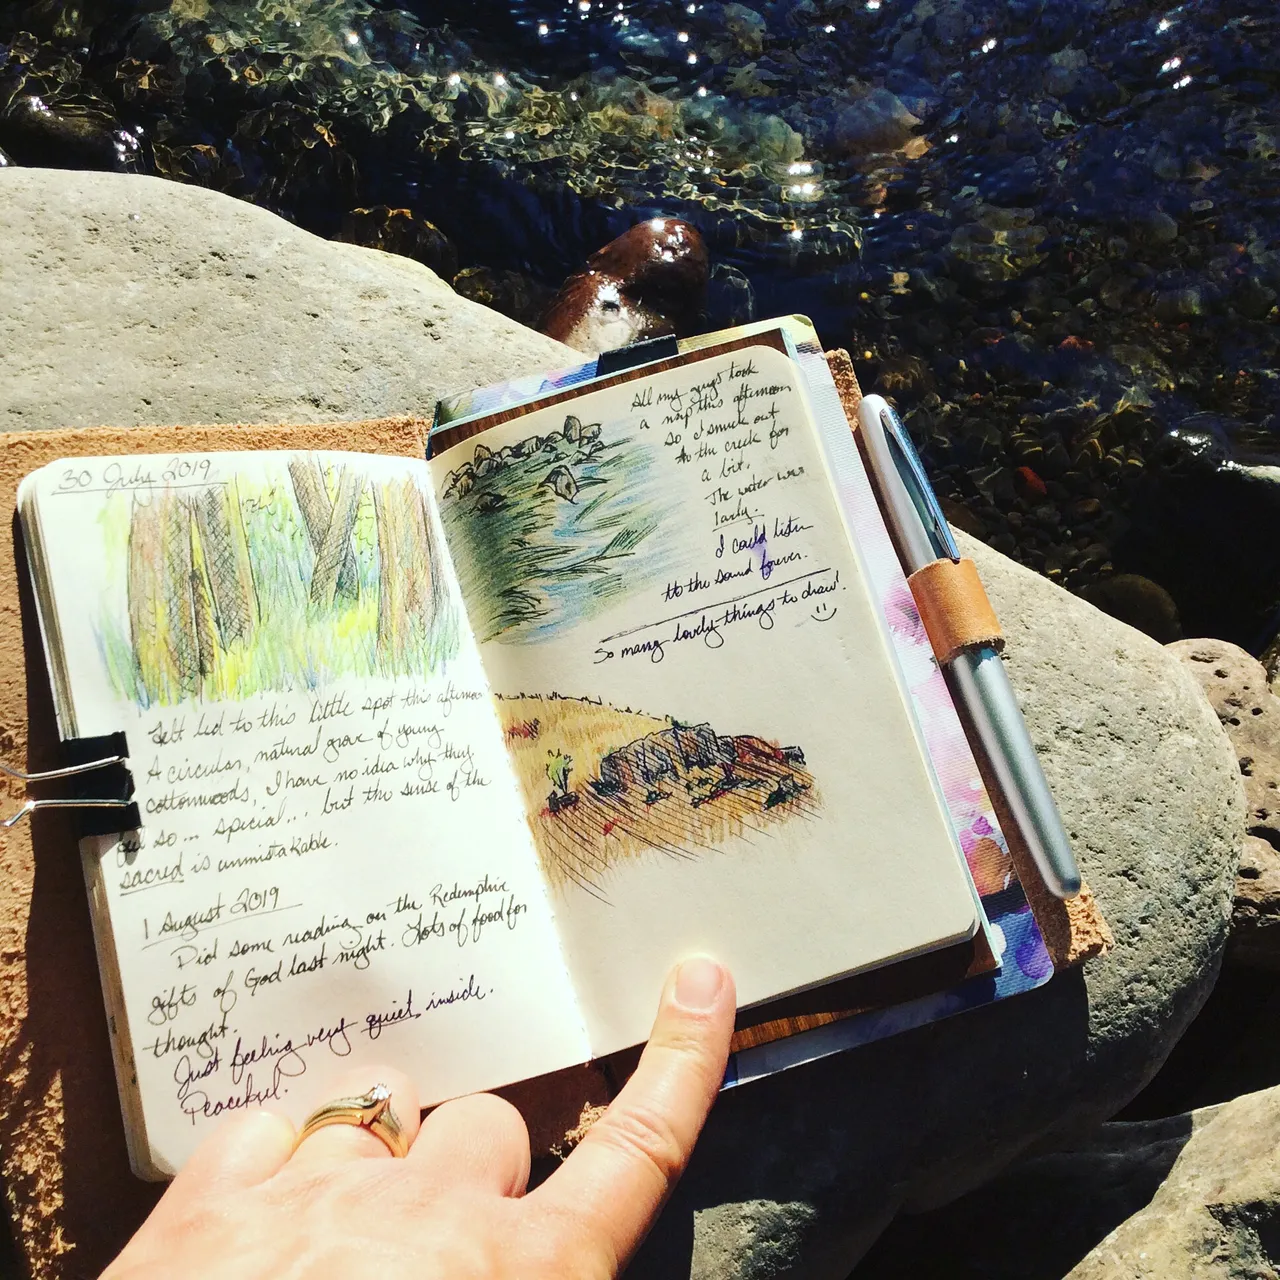 30 July 2019
Felt led to this little spot this afternoon
A circular, natural grove of young
cottonwoods, I have no idea why they
feel so... special... but the sense of the
sacred is unmistakable.
1 August 2019
Did some reading on the Redemptive
gifts of God last night. Lots of food for
thought.
Just feeling very quiet inside.
Peaceful.
All my guys took
a nap this afternoon
so I snuck out
to the creek for
a bit.
The water was
lovely.
I could listen
to the sound forever.
So many lovely things to draw!